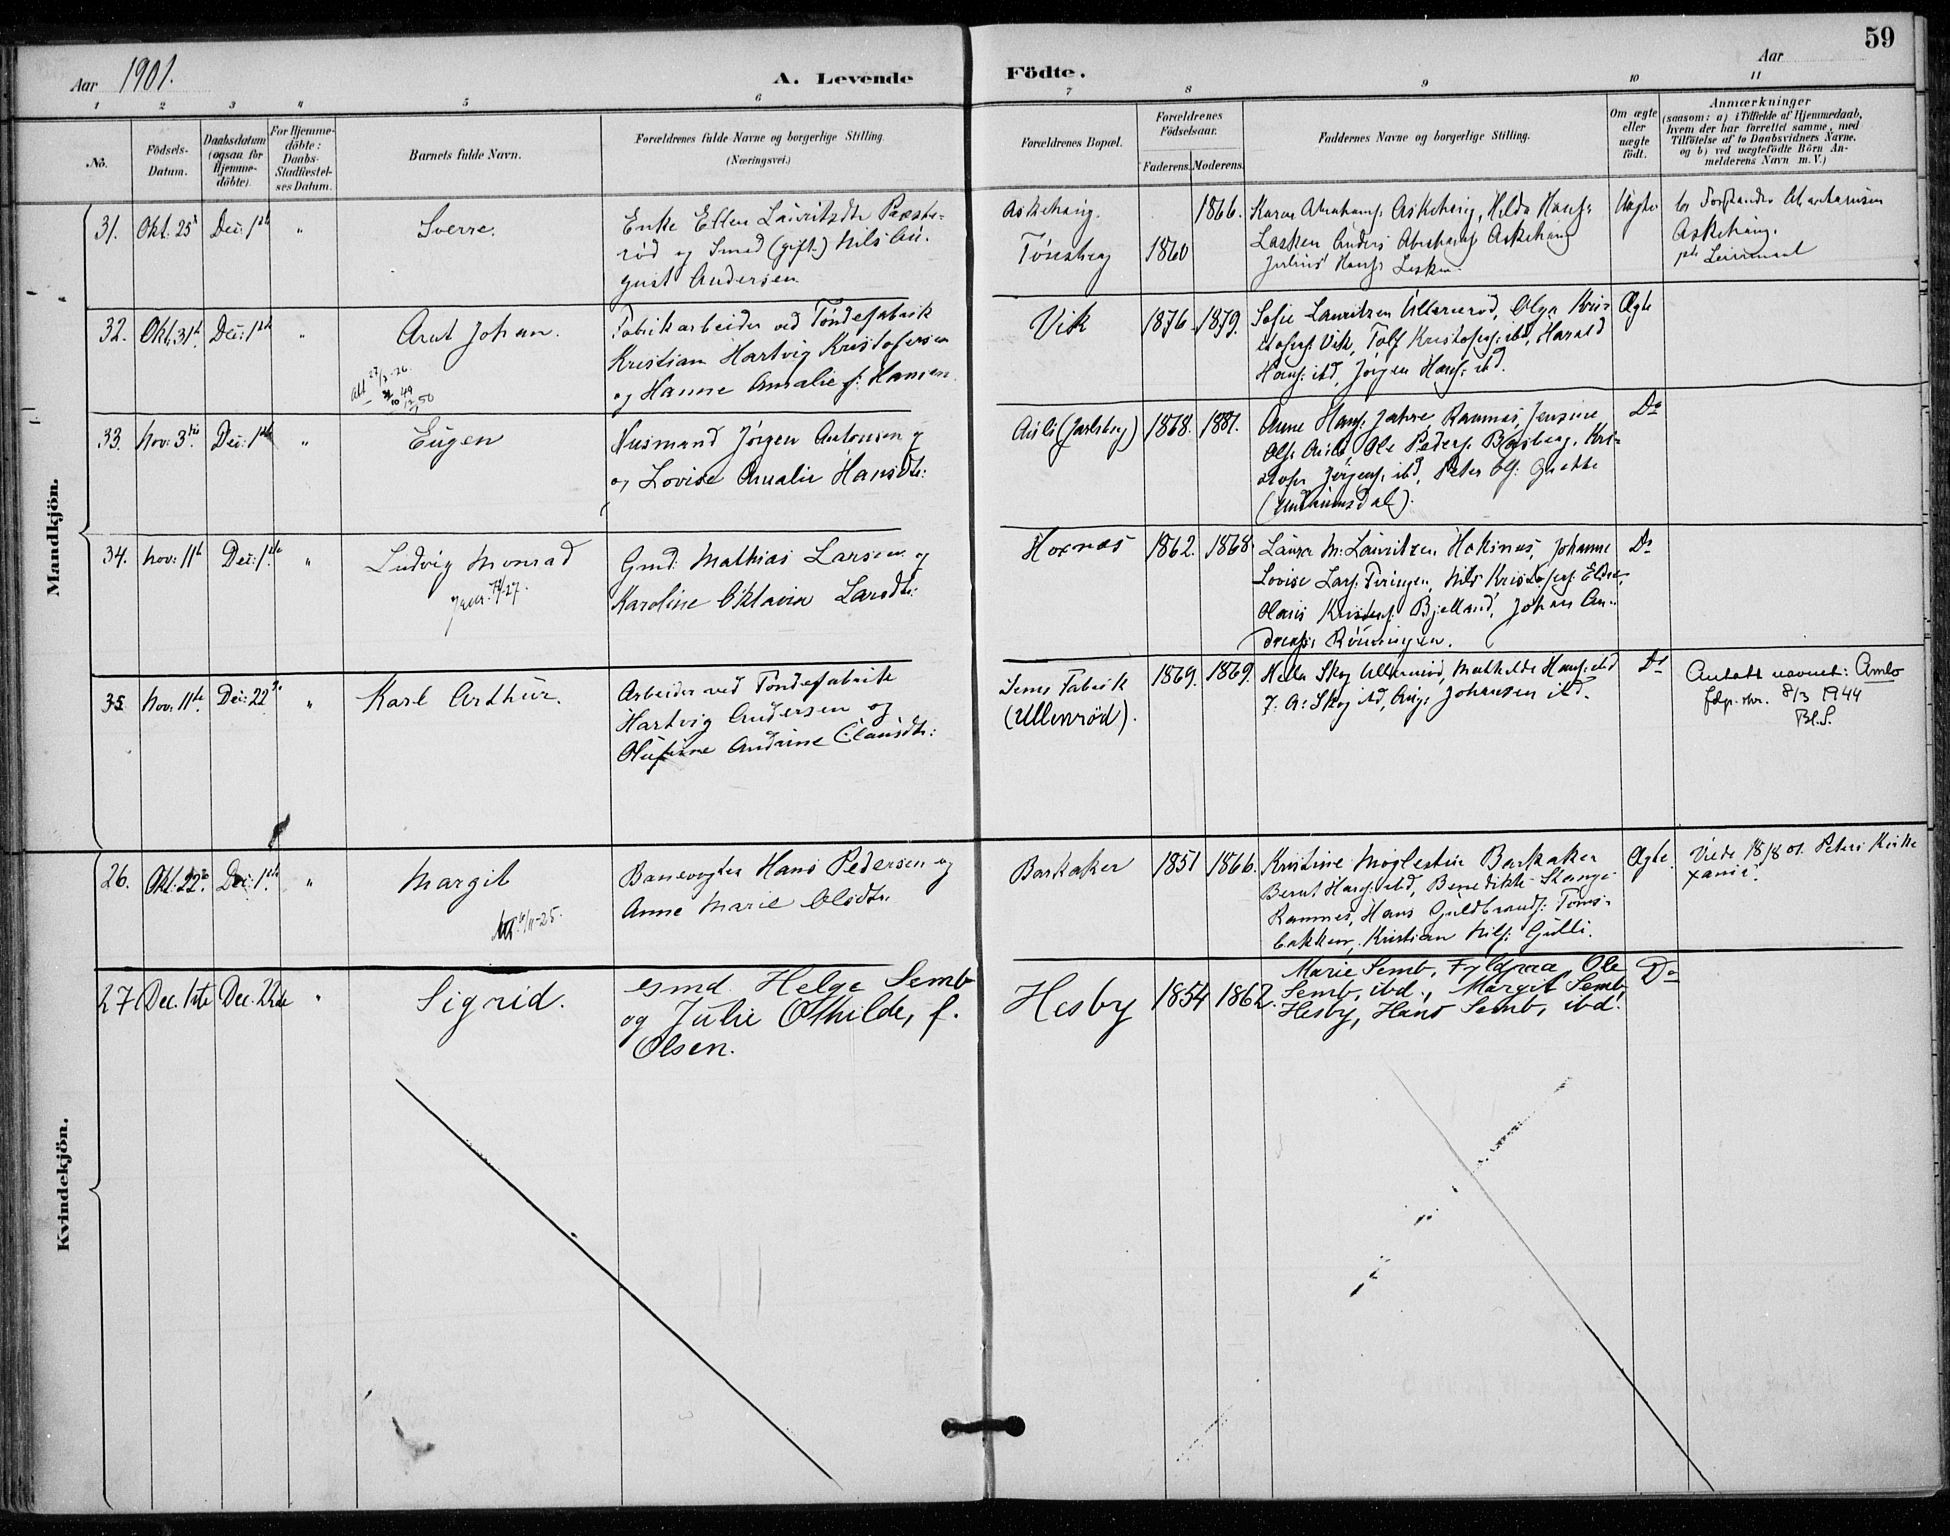 59
Aar 1901.
A. Levende Födte.
Aar
1 2 3 4 5 6 7 8 9 10 11
No.
Födsels-
Datum.
Daabsdatum
(ogsaa for
Hjemme-
döbte).
For Hjemme-
döbte:
Daabs-
Stadfæstel-
ses Datum.
Barnets fulde Navn.
Forældrenes fulde Navne og borgerlige Stilling.
(Næringsvei.)
Forældrenes Bopæl.
Forældrenes
Födselsaar.
Faderens. Moderens.
Faddernes Navne og borgerlige Stilling.
Om ægte
eller
uægte
födt.
Anmærkninger
(saasom: a) i Tilfælde af Hjemmedaab,
hvem der har forrettet samme, med
Tilföielse af to Daabsvidners Navne.
og b) ved uægtefödte Börn An-
melderens Navn m. V.)
Mandkjön.
31. Okt. 25 Dec: 1ste "
Sverre.
Enke Ellen Lauritzdtr
rød og Smed (gift) Nils Au-
gust Andersen
Askehaug.
Tönsberg
1860
1866.
Karen Abrahams. Askehaug, Hilda Hans:
Lasken Anders Abrahams Askehaug
Julius Hans: Lasken.
Uægte
Askehaug.
32. Okt. 31te Dec: 1ste "
Arnt Johan.
27/3-26.
Fabrikarbeider ved Tøndefabrik
Kristian Hartvig Kristofersen
og Hanne Amalie f: Hansen.
Vik
1876 1879.
Sofie Lauritzen Ullenrød, Olga Kris-
tofers: Vik, Tolf Kristofers: ibd, Harald
Hans: ibd, Jörgen Hans: ibd.
Ægte
33. Nov: 3die Dec: 1ste "
Eugen
Husmand Jörgen Antonsen og
og Lovise Amalie Hansdtr:
(Jarlsberg)
1868. 1881.
Anne Hans: Jahre, Ramnes, Jensine
Ols: Ole Peders: Basberg, Kris-
tofer Jörgens: ibd, Peter Ols:
Do
34. Nov: 11te Dec: 1ste "
Ludvig Monrad
Gmd: Mathias Larsen og
Karoline Oktavia Larsdtr:
Hoxnes
1862. 1868.
Laura M: Lauritzen, Hoksnes, Johanne
Lovise Lars: Firingen, Nils Kristofers:
Olaus Kristens: Bjelland, Johan An-
dreas: Rönningen.
Do
35 Nov: 11te Dec: 22de "
Karl Arthur.
Arbeider ved Tøndefabrik
Hartvig Andersen og
Olufine Andrine Clausdtr:
Sems Fabrik
(Ullenröd).
1869. 1869.
Hella Skog Ullenröd, Mathilde Hans: ibd
F. A: Skog ibd, Aug: Johansen ibd.
Do
Antatt navnet: Amlo
8/3 1944
Bl.S.
Kvindekjön.
26. Okt. 22de Dec: 1ste "
Margit
6/11-25.
Banevogter Hans Pedersen og
Anne Marie Olsdtr.
Barkaker
1851 1866.
Kristine Møglestue Barkaker
Bernt Hans: ibd, Benedikte Stange
Ramnes, Hans Guldbrands: Töms-
bakken, Kristian Nils: Gulli.
Ægte.
Viede 18/8 01. Petri Kirke
Xania.
27 Dec. 1ste Dec. 22de "
Sigrid.
Gmd. Helge Semb
og Julie Othilde, f.
Olsen.
Hesby
1854 1862.
Marie Semb, Fyldpaa Ole
Semb, ibd., Margit Semb
Hesby, Hans Semb, ibd.
Do